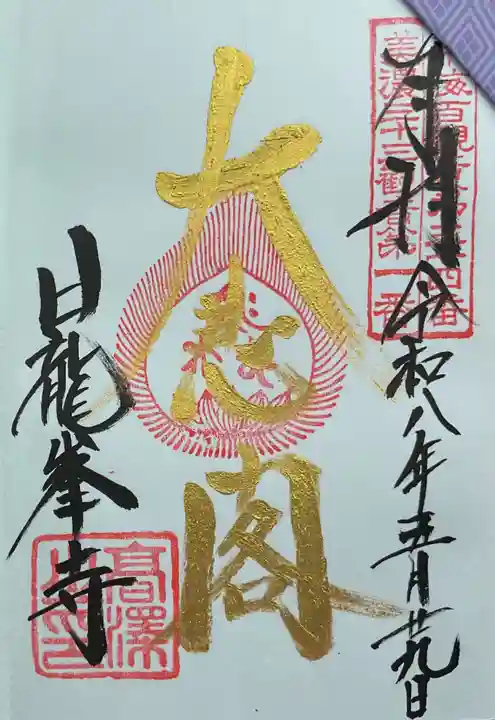 奉拝
令和八年五月廿九日
美濃三十三観音第一番
大悲閣
日龍峯寺
高澤